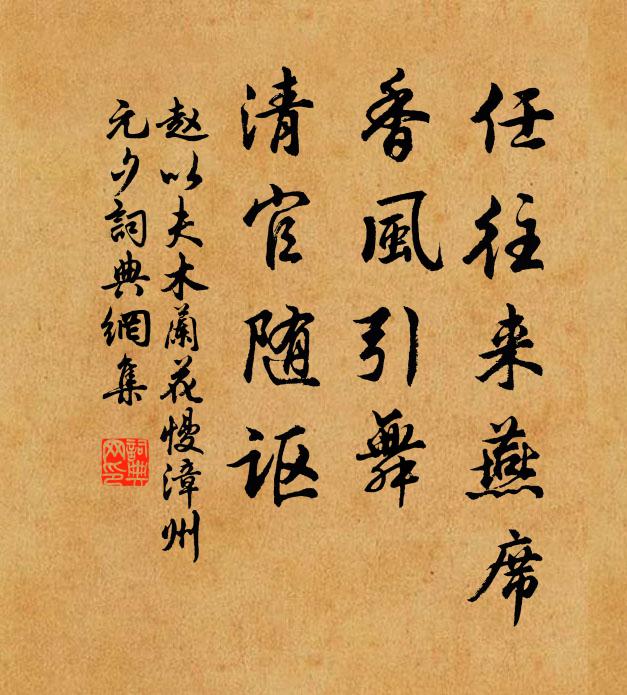 任往来燕席
香風引舞
清官随讴
赵以夫木蘭花慢漳州
元夕詞典網集
詞典网印